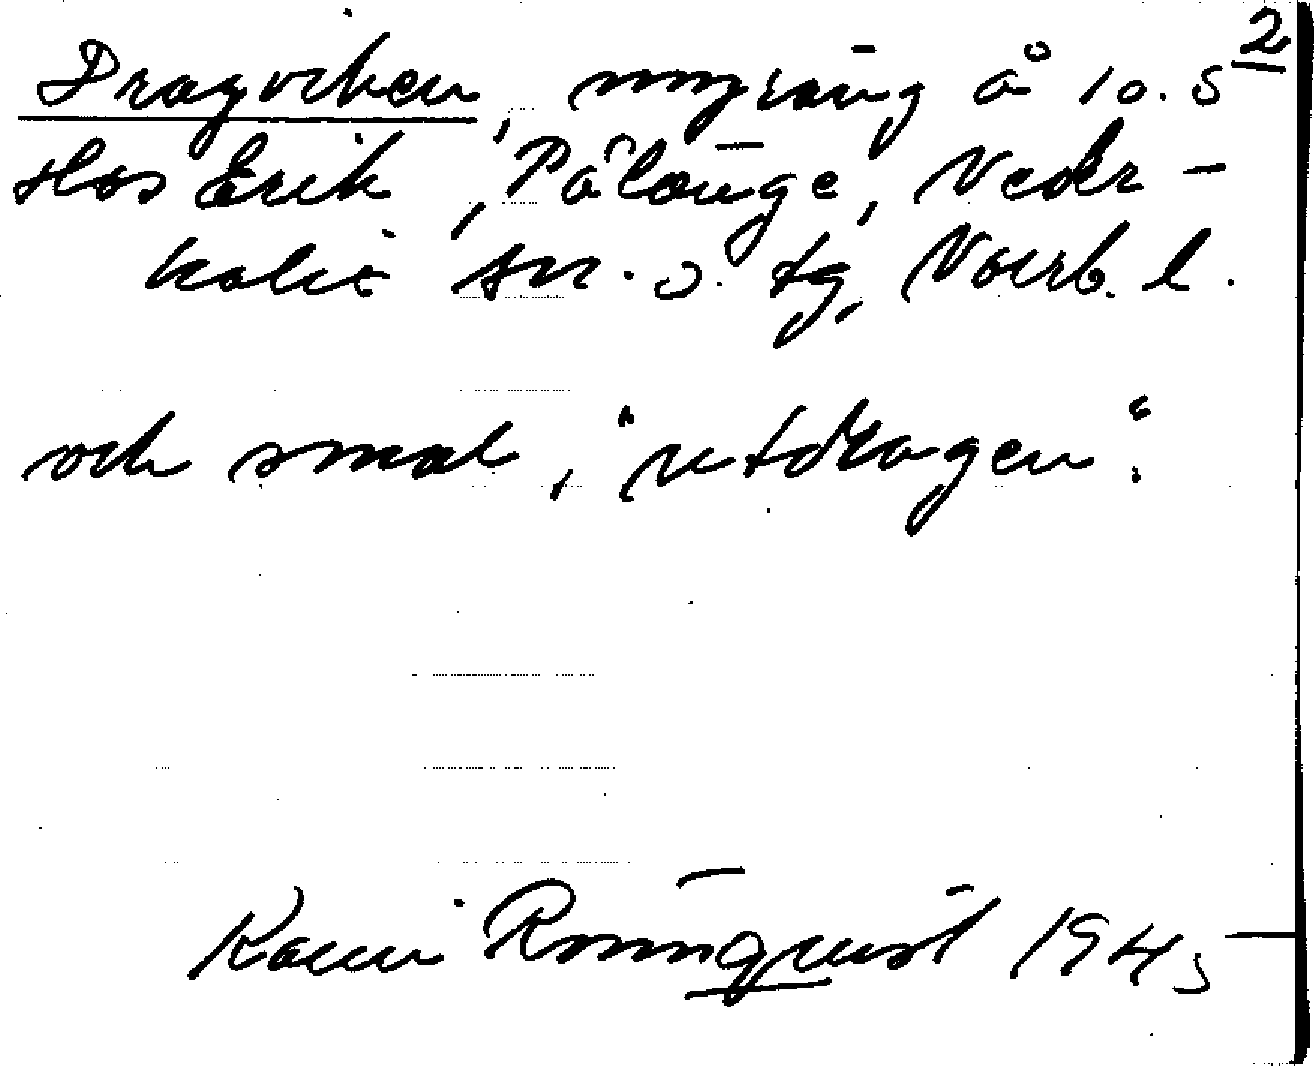 2
Dragviken, myräng å 10.5
Hos Erik, Pålänge, Neder-
kalix sn. o. tg, Norrb. l.
och smal, "utdragen".
Karin Rönnqvist 1945